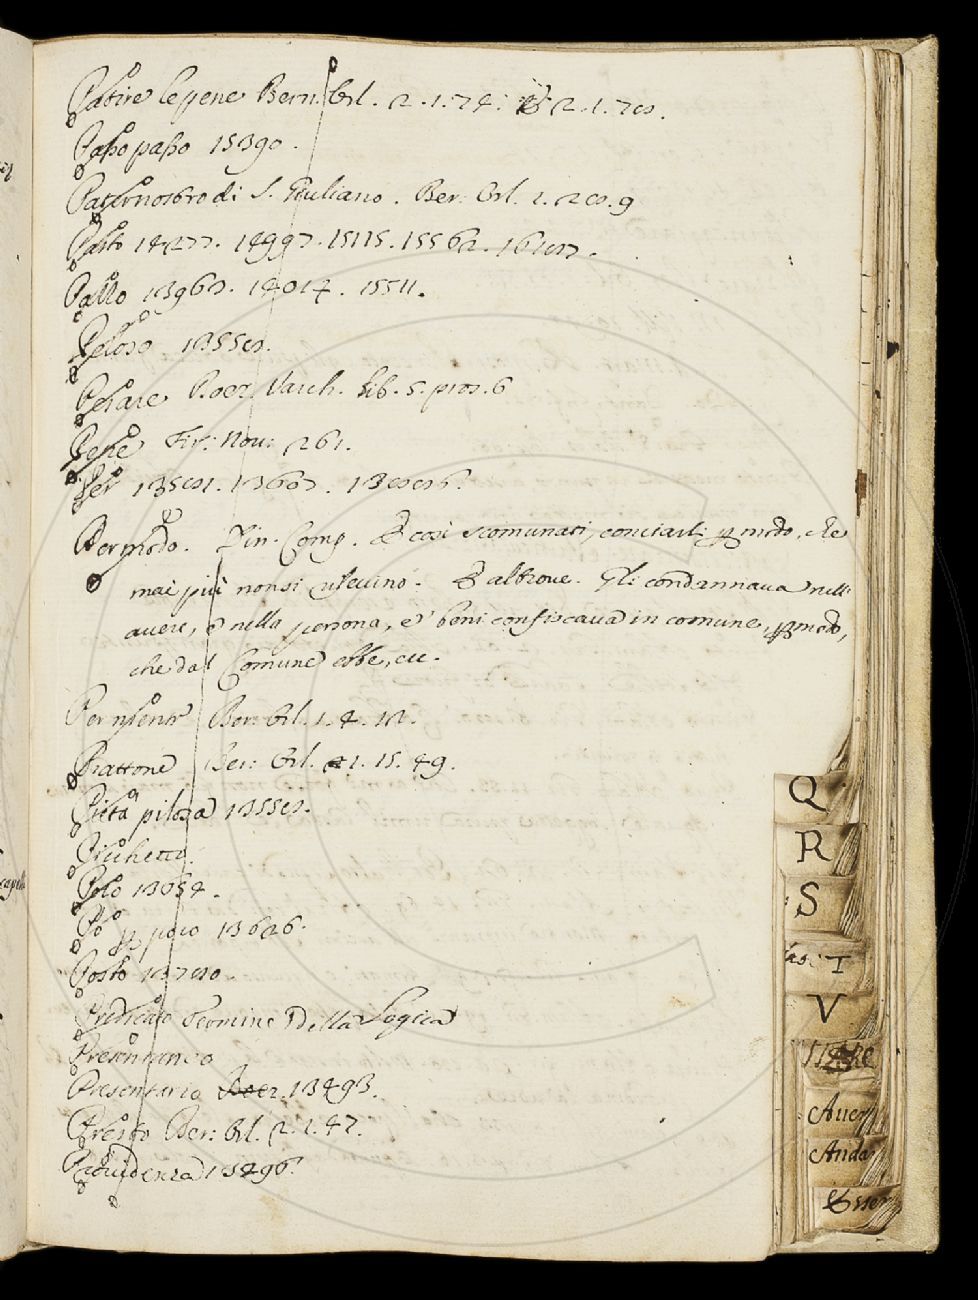 Patire le pene Bern. Orl. 2. 1. 74. 2. 1. 78.
Passo passo 15390.
Paternostro di S. Giuliano. Ber: Orl. 1. 20. 9
Pasto 14277. 14997. 15115. 15562.
Patto 13967. 14014. 15511.
Peloso
Pesare Boez. Varch. lib. 5. pros. 6
Pesce Fir: Nov: 261.
Per
Per modo. Din. Comp. E così scomunati, conciarli ꝑ modo, che
mai più non si rilevino. E altrove. Gli condannava nell'
avere, e nella persona, e' beni confiscava in comune, ꝑ modo,
che dal Comune ebbe, ecc.
Ber: Orl. 1. 4. 12.
Piattone Ber: Orl. 1. 15. 49.
Pietà pilosa
Picchetto.
Polo 13054.
Po' ꝑ poco 13626.
Posto
Predicato Termine della Logica
Presentaneo
Presentario 13493.
Presto Ber: Orl. 2. 1. 47.
Providenza 13496.
Q
R
S
T
V
Aver
Anda
Esser